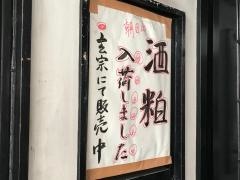 朝日山
酒粕
入荷しました
玄宗にて販売中